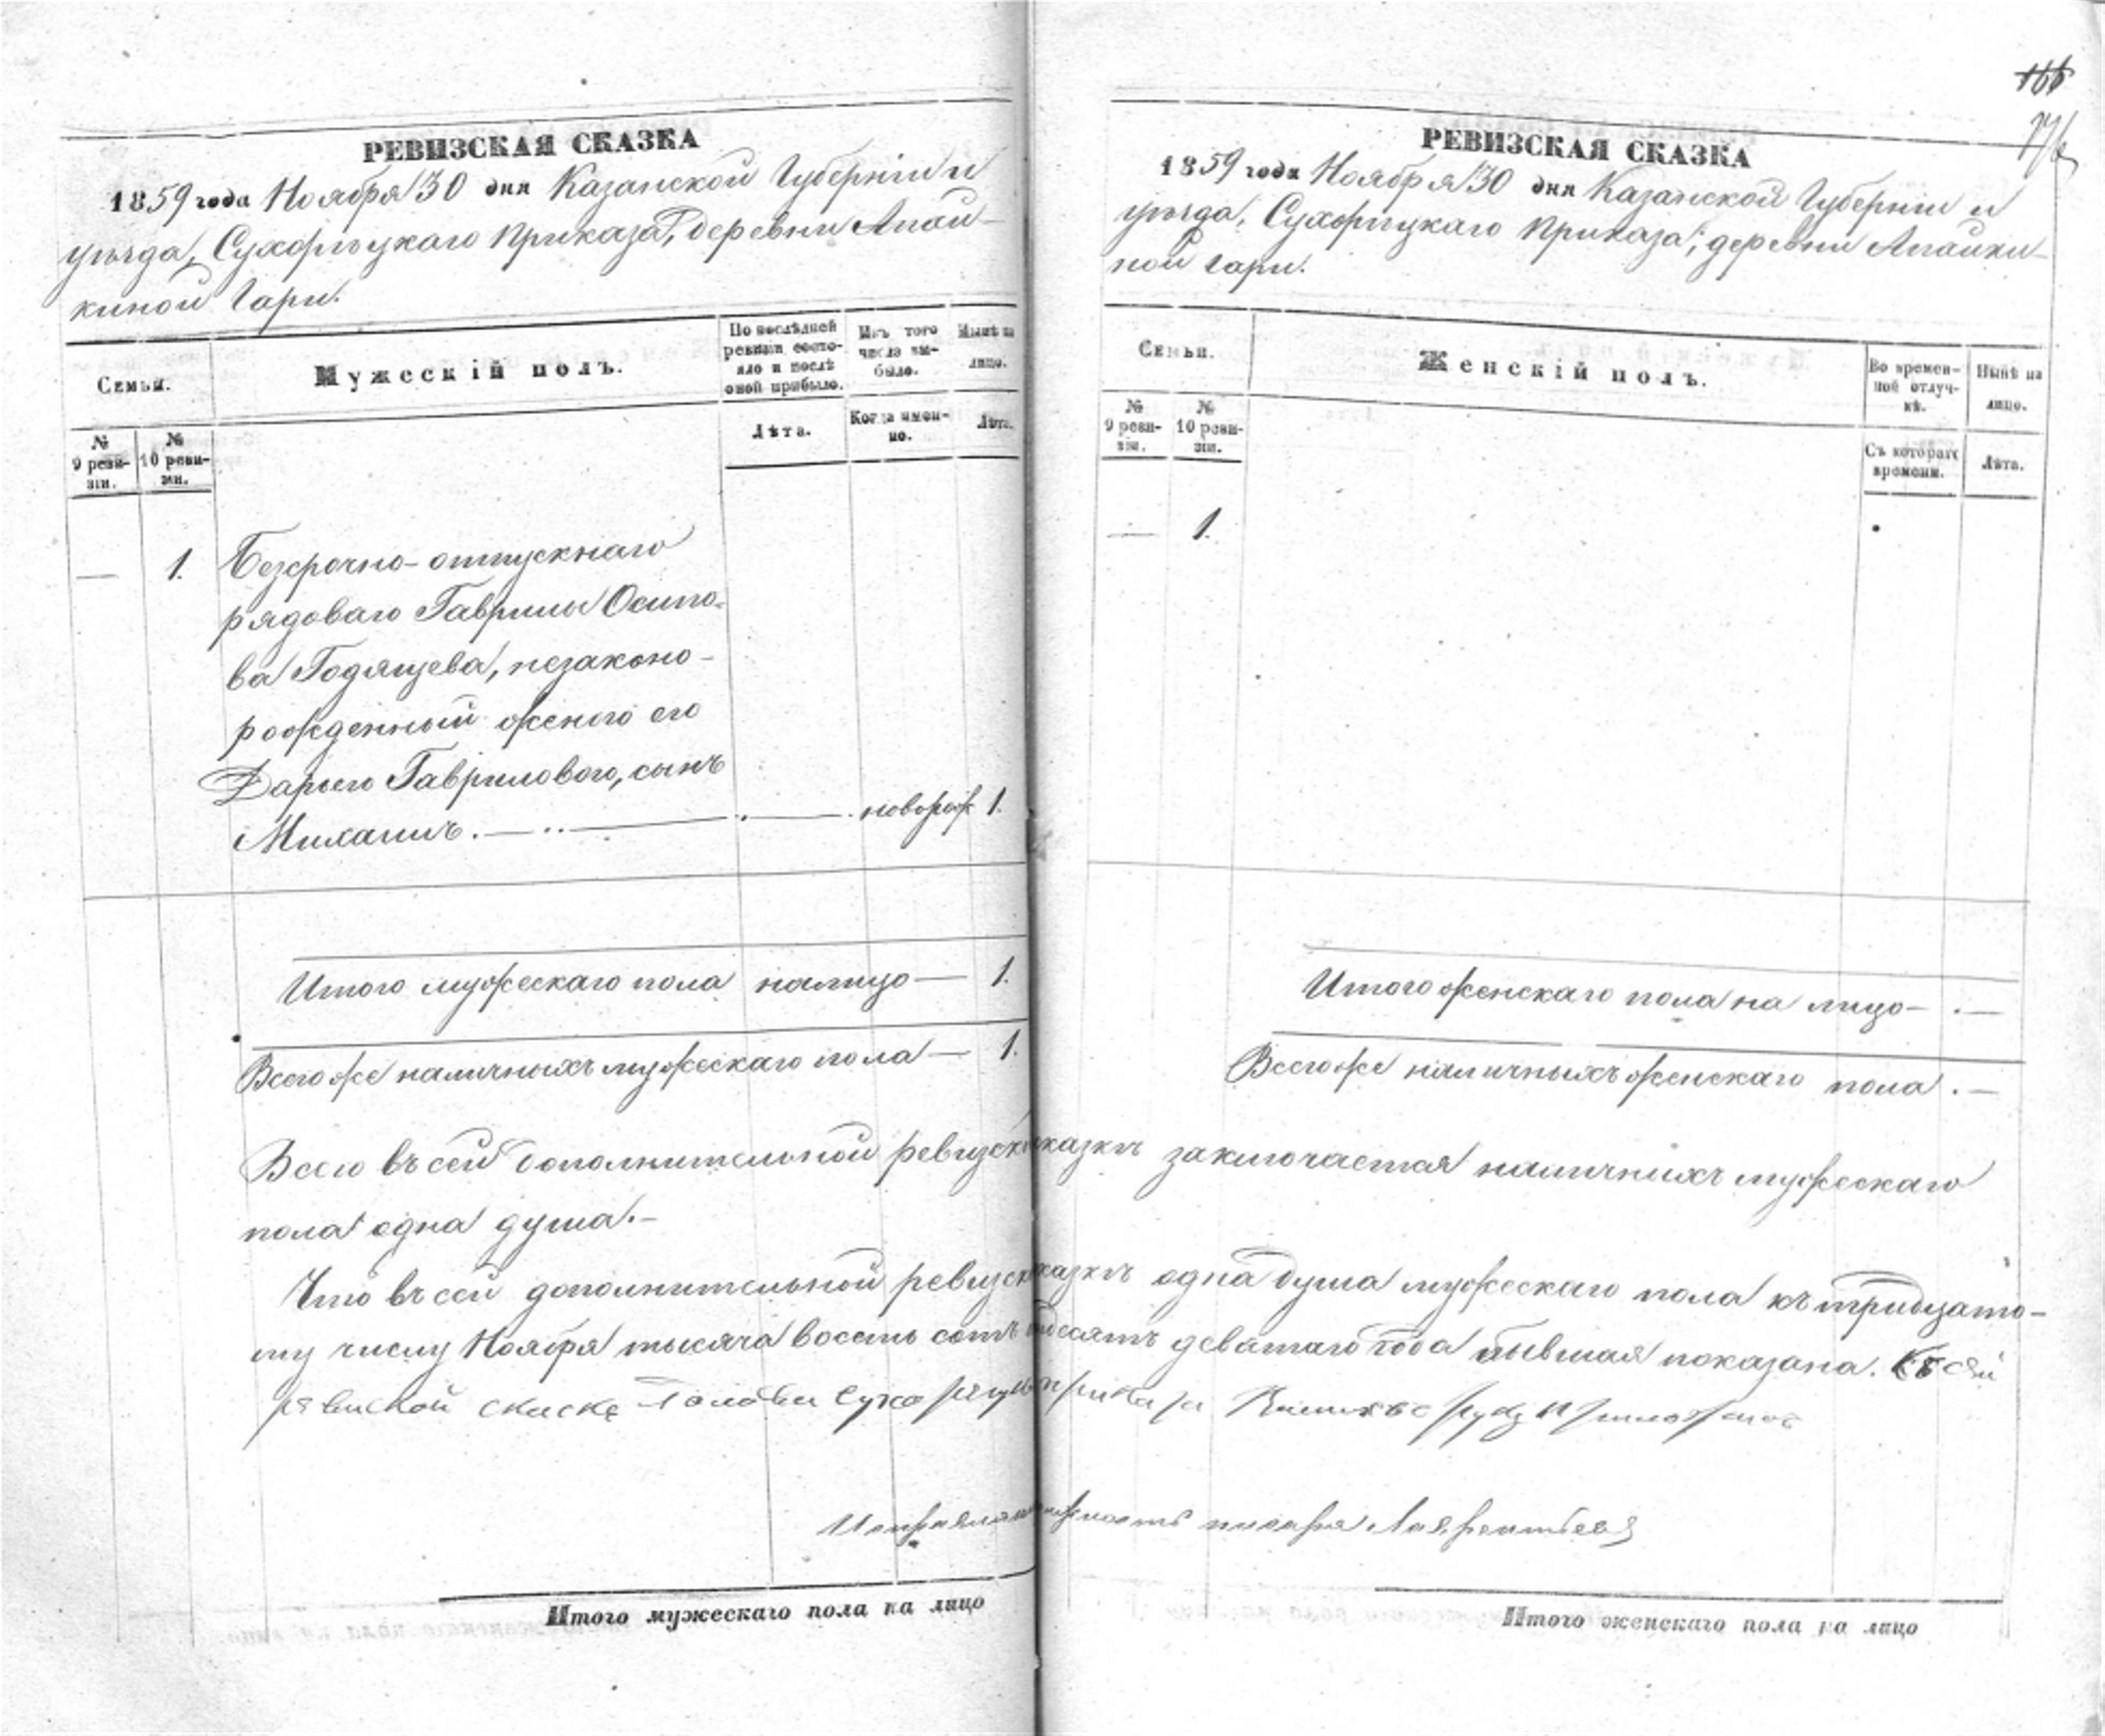 РЕВИЗСКАЯ СКАЗКА
1859 года Ноября 30 дня Казанской Губерніи и
уѣзда, Сухорѣцкаго Приказа, деревни Апай-
киной Гари.
Семьи.
Мужескій полъ.
По послѣдней ревизіи состояло и послѣ оной прибыло.
Изъ того числа выбыло.
Нынѣ на лицо.
№ 9 ревизіи.
№ 10 ревизіи.
Лѣта.
Когда именно.
Лѣта.
— 1. Безсрочно-отпускнаго
рядоваго Гаврилы Осипо-
ва Годящева, незаконо-
рожденный женою его
Дарьею Гавриловою, сынъ
Михаилъ. — новорож 1.
Итого мужескаго пола налицо — 1.
Всего же наличныхъ мужескаго пола — 1.
166
РЕВИЗСКАЯ СКАЗКА
1859 года Ноября 30 дня Казанской Губерніи и
уѣзда, Сухорѣцкаго Приказа, деревни Апайки-
ной Гари.
Семьи.
Женскій полъ.
Во временной отлучкѣ.
Нынѣ на лицо.
№ 9 ревизіи.
№ 10 ревизіи.
Съ котораго времени.
Лѣта.
— 1.
Итого женскаго пола на лицо — . —
Всего же наличныхъ женскаго пола . —
Всего въ сей дополнительной ревизск сказкѣ заключается наличныхъ мужескаго
пола одна душа. —
Что въ сей дополнительной ревизск сказкѣ одна душа мужескаго пола къ тридцато-
му числу Ноября тысяча восемь сотъ десятъ девятаго года бывшая показана. Къ сей
ревиской скаске Голова Сухорецк приказа руку приложилъ
Исправляющ должность писаря Лаврентьевъ
Итого мужескаго пола на лицо
Итого женскаго пола на лицо